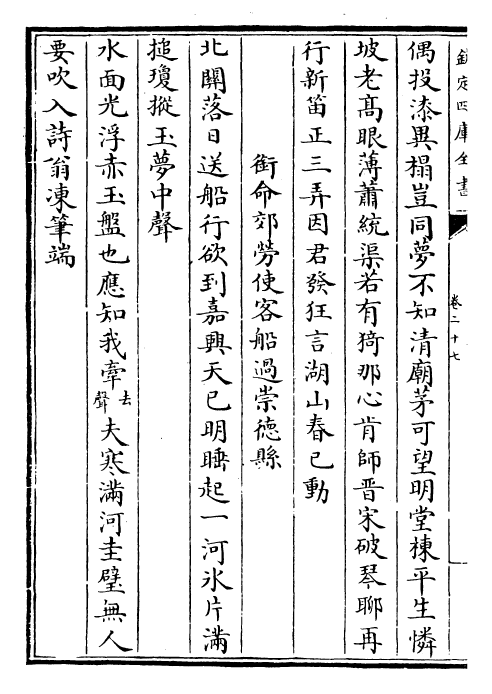 欽定四庫全書
卷二十七
偶投漆異榻豈同夢不知清廟茅可望明堂棟平生憐
坡老高眼薄蕭統渠若有猗那心肯師晋宋破琴聊再
行新笛正三弄因君發狂言湖山春已動
銜命郊勞使客船過崇德縣
北關落日送船行欲到嘉興天已明睡起一河氷片滿
搥瓊摐玉夢中聲
水面光浮赤玉盤也應知我牽去聲夫寒滿河圭璧無人
要吹入詩翁凍筆端